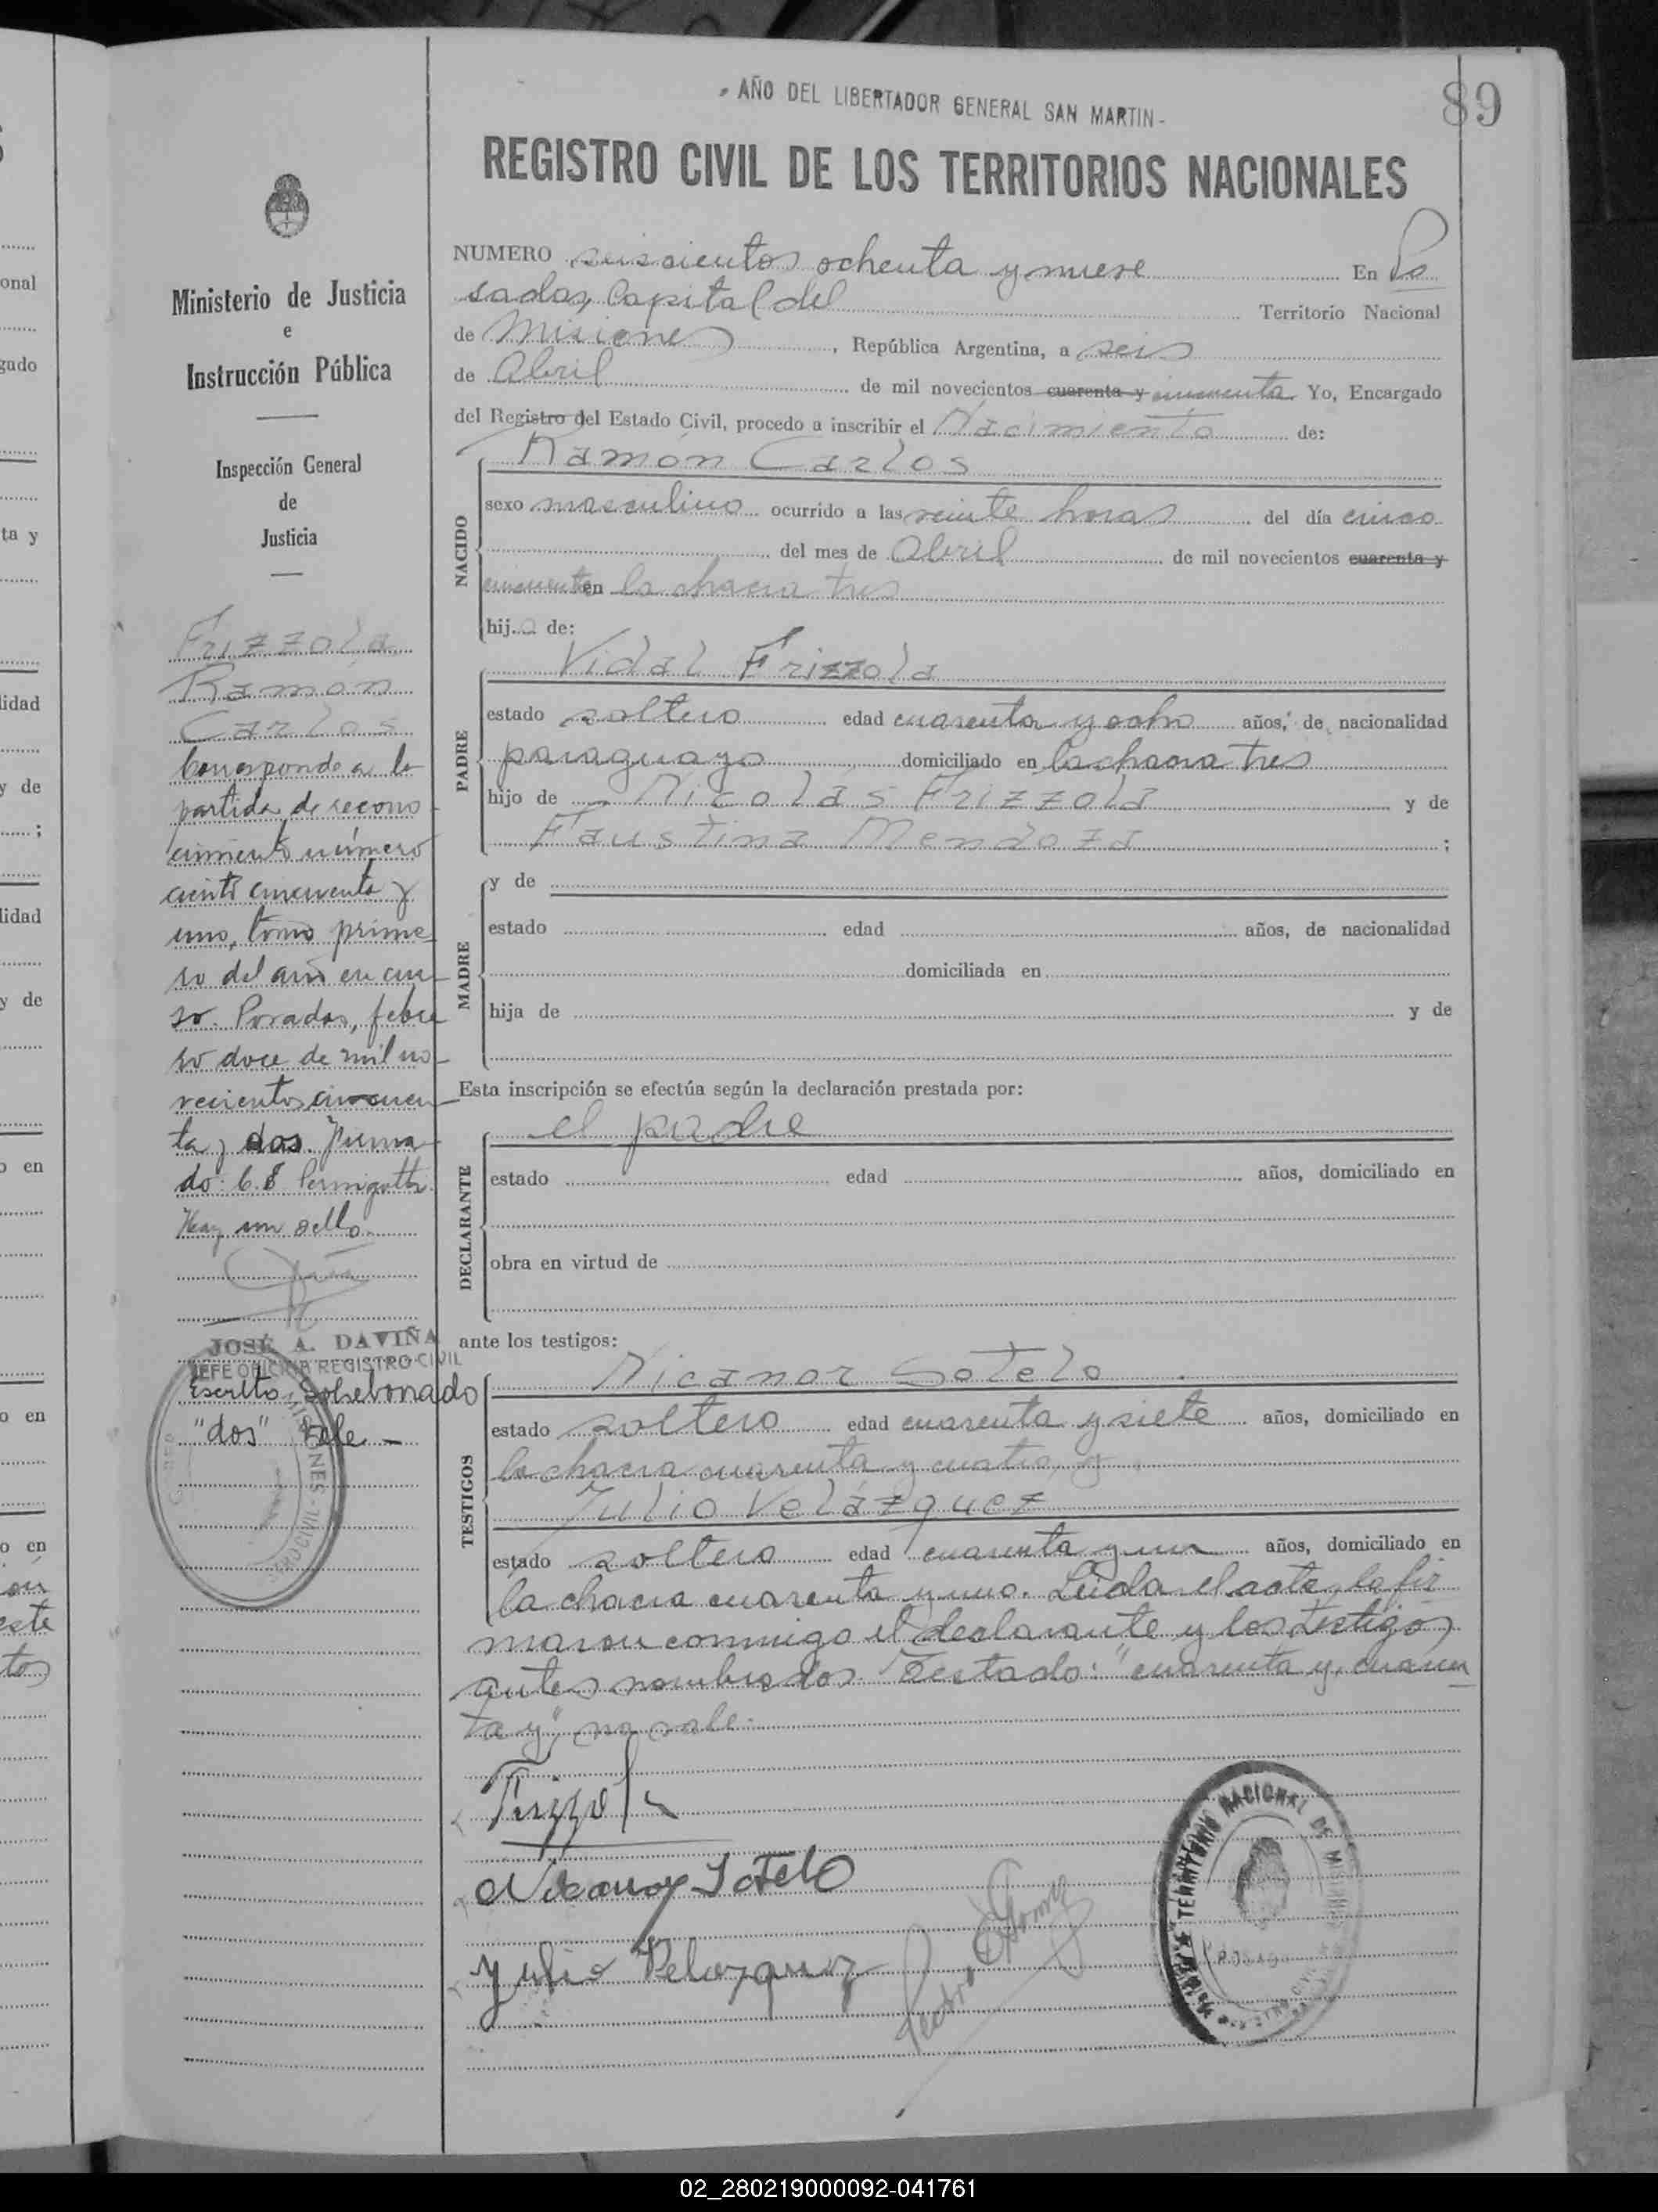 - AÑO DEL LIBERTADOR GENERAL SAN MARTIN -
89
REGISTRO CIVIL DE LOS TERRITORIOS NACIONALES
NUMERO seiscientos ochenta y nueve En Po
sadas, Capital del Territorio Nacional
de Misiones, República Argentina, a seis
de Abril de mil novecientos cuarenta y cincuenta Yo, Encargado
del Registro del Estado Civil, procedo a inscribir el Nacimiento de:
Ramón Carlos
NACIDO
sexo masculino ocurrido a las veinte horas del día cinco
del mes de Abril de mil novecientos cuarenta y
cincuenta en la chacra tres
hijo de:
Vidal Frizzola
PADRE
estado soltero edad cuarenta y ocho años, de nacionalidad
paraguayo domiciliado en la chacra tres
hijo de Nicolás Frizzola y de
Faustina Mendoza ;
MADRE
y de
estado edad años, de nacionalidad
domiciliada en
hija de y de
Esta inscripción se efectúa según la declaración prestada por:
el padre
DECLARANTE
estado edad años, domiciliado en
obra en virtud de
ante los testigos:
Nicanor Sotelo
TESTIGOS
estado soltero edad cuarenta y siete años, domiciliado en
la chacra cuarenta y cuatro, y
Julio Velázquez
estado soltero edad cuarenta y un años, domiciliado en
la chacra cuarenta y uno. Leída el acta, la fir
maron conmigo el declarante y los testigos
antes nombrados. Testado: "cuarenta y, cuaren
ta y" no vale.
Frizzola
Nicanor Sotelo
Julio Velazquez
Pedro Gomez
TERRITORIO NACIONAL DE MISIONES
Ministerio de Justicia
e
Instrucción Pública
Inspección General
de
Justicia
Frizzola
Ramón
Carlos
Corresponde a la
partida de recono
cimiento número
ciento cincuenta y
uno, tomo prime
ro del año en cur
so. Posadas, febre
ro doce de mil no
vecientos cincuen
ta y dos. Firma
do: C. E.
Hay un sello.
JOSÉ A. DAVIÑA
JEFE OFICINA REGISTRO CIVIL
Escrito sobreborrado
"dos" Vale -
MISIONES - 
onal
gado
ta y
lidad
y de
;
lidad
y de
o en
o en
o en
este
tos
02_280219000092-041761